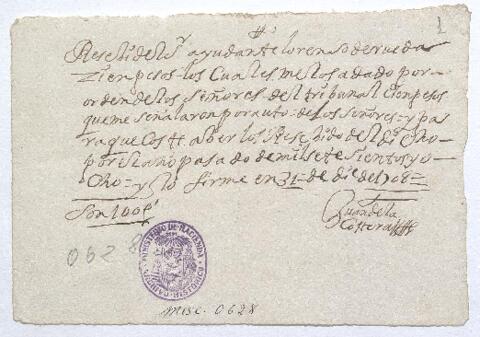 1
Reseui del sr ayudante lorenso de rueda
Zien pesos los Cuales me los a dado por
orden de los señores del tribunal Cien pesos
que me señalaron por auto de los señores y pa
ra que Coste aber los Resebido del dicho
por el año pasado de mil sete sientos y o
cho y lo firme en 31 de dic del 708
Son 100 p
Juan de la
Cottera
0628
MINISTERIO DE HACIENDA
ARCHIVO HISTORICO
misc. 0628